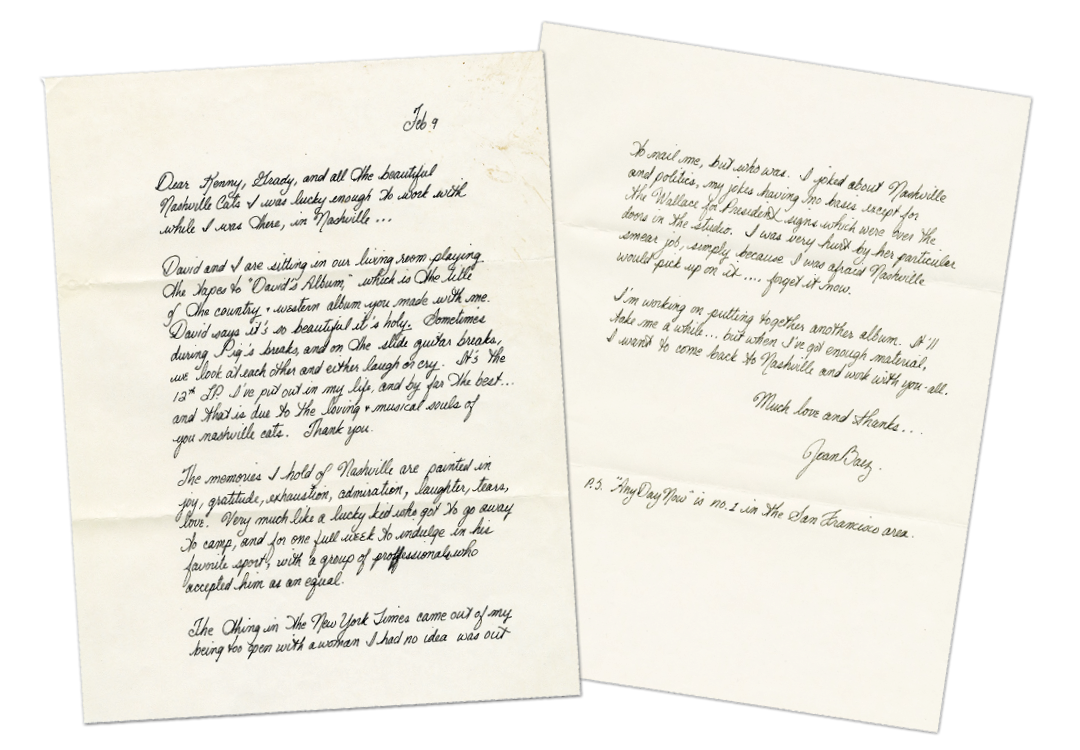 Feb 9
Dear Kenny, Grady, and all the beautiful
Nashville Cats I was lucky enough to work with
while I was there, in Nashville ...
David and I are sitting in our living room playing
the tapes to "David's Album," which is the title
of the country + western album you made with me.
David says it's so beautiful it's holy. Sometimes
during Pig's breaks, and on the slide guitar breaks,
we look at each other and either laugh or cry. It's the
12th LP I've put out in my life, and by far the best...
and that is due to the loving + musical souls of
you nashville cats. Thank you.
The memories I hold of Nashville are painted in
joy, gratitude, exhaustion, admiration, laughter, tears,
love. Very much like a lucky kid who got to go away
to camp, and for one full week to indulge in his
favorite sport, with a group of proffessionals who
accepted him as an equal.
The thing in the New York Times came out of my
being too open with a woman I had no idea was out
to nail me, but who was. I joked about Nashville
and politics, my jokes having no basis except for
the Wallace for President signs which were over the
doors in the studio. I was very hurt by her particular
smear job, simply because I was afraid Nashville
would pick up on it.... forget it now.
I'm working on putting together another album. It'll
take me a while... but when I've got enough material,
I want to come back to Nashville and work with you-all.
Much love and thanks...
Joan Baez.
P.S. "Any Day Now" is no. 1 in the San Francisco area.